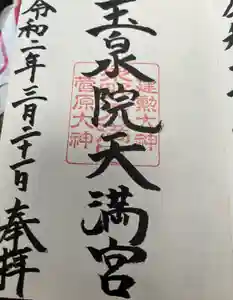 玉泉院天満宮
建勲大神
菅原大神
令和二年三月二十一日
奉拝